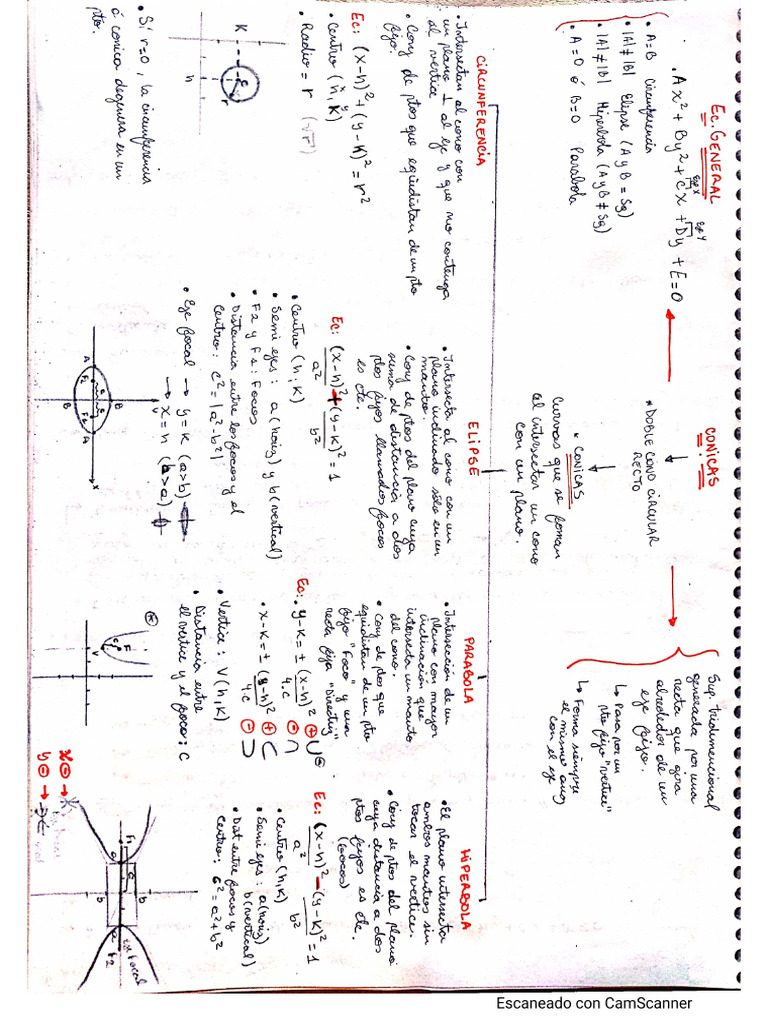 CONICAS
• DOBLE CONO CIRCULAR
RECTO
• CONICAS
Curvas que se forman
al intersectar un cono
con un plano.
Ec. GENERAL
• Ax² + By² + Cx + Dy + E = 0
• A=B Circunferencia
• |A|≠|B| Elipse (A y B = Sg)
• |A|≠|B| Hiperbola (A y B ≠ Sg)
• A=0 ó B=0 Parabola
Sup. tridimencional
generada por una
recta que gira
alrededor de un
eje fijo.
↳ Pasa por un
pto fijo "vertice"
↳ Forma siempre
el mismo ang
con el eje
CIRCUNFERENCIA
• Intersectan al cono con
un plano ⊥ al eje y que no contenga
al vertice
• Conj de ptos que equidistan de un pto
fijo.
Ec: (x-h)² + (y-k)² = r²
• Centro (h, k)
• Radio = r (√r)
K
r
h
• Si r=0, la circunferencia
ó conica degenera en un
pto.
ELIPSE
• Intersecta al cono con un
plano inclinado sólo en un
manto.
• Conj de ptos del plano cuya
suma de distancia a dos
ptos fijos llamados focos
es cte.
Ec: (x-h)² + (y-k)² = 1
a² b²
• Centro (h, k)
• Semi ejes: a (horiz) y b (vertical)
• F2 y F1: Focos
• Distancia entre los focos y el
centro: c² = |a² - b²|
• Eje focal → y = k (a>b)
→ x = h (b>a)
A F2 F1 A x
B B
PARABOLA
• Intersección de un
plano con mayor
inclinación que
intersecta un manto
del cono.
• Conj de ptos que
equidistan de un pto
fijo "Foco" y una
recta fija "Directriz"
Ec: y-k = ± (x-h)² ⊕ ∪ ⊖ ∩
4.c
• x-k = ± (y-h)² ⊕ ⊂ ⊖ ⊃
4.c
• Vertice: V (h, k)
• Distancia entre
el vertice y el foco: c
F
V
HIPERBOLA
• El plano intersecta
ambos mantos sin
tocar el vertice.
• Conj de ptos del plano
cuya distancia a dos
ptos fijos es cte.
(focos)
Ec: (x-h)² - (y-k)² = 1
a² b²
• Centro (h, k)
• Semi ejes: a (horiz)
b (vertical)
• Dist entre focos y
centro: c² = a² + b²
F1 F2
b b
eje focal
x ⊖ →
y ⊖ →
Escaneado con CamScanner